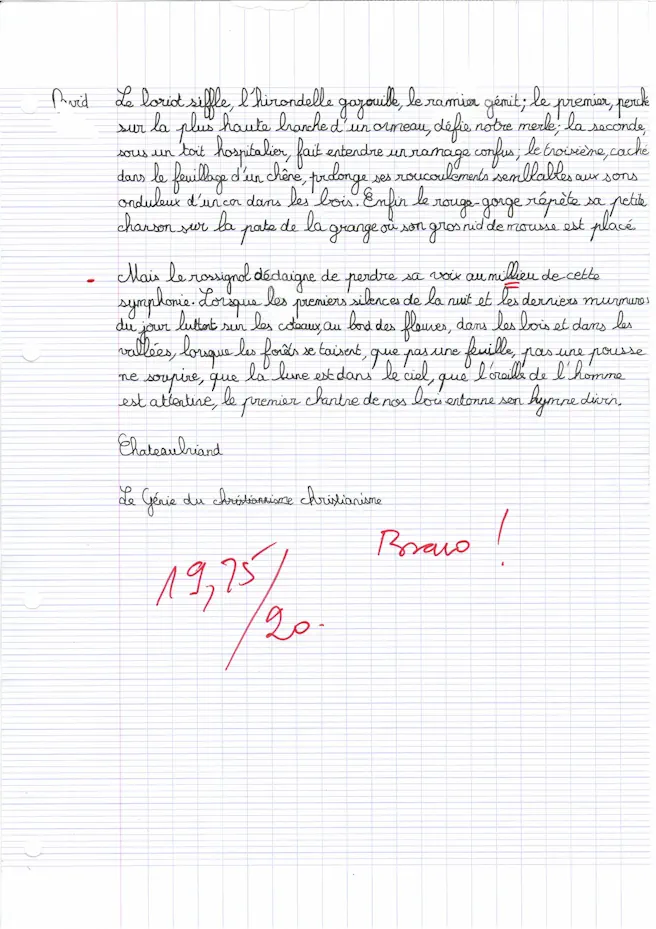 David Le loriot siffle, l'hirondelle gazouille, le ramier gémit; le premier, perché
sur la plus haute branche d'un ormeau, défie notre merle; la seconde,
sous un toit hospitalier, fait entendre un ramage confus; le troisième, caché
dans le feuillage d'un chêne, prolonge ses roucoulements semblables aux sons
onduleux d'un cor dans les bois. Enfin le rouge-gorge répète sa petite
chanson sur la pate de la grange où son gros nid de mousse est placé
Mais le rossignol dédaigne de perdre sa voix au millieu de cette
symphonie. Lorsque les premiers silences de la nuit et les derniers murmures
du jour luttent sur les coteaux, au bord des fleuves, dans les bois et dans les
vallées, lorsque les forêts se taisent, que pas une feuille, pas une pousse
ne soupire, que la lune est dans le ciel, que l'oreille de l'homme
est attentive, le premier chantre de nos bois entonne son hymne divin.
Chateaubriand
Le Génie du christiannisme christianisme
Bravo !
19,75/20.